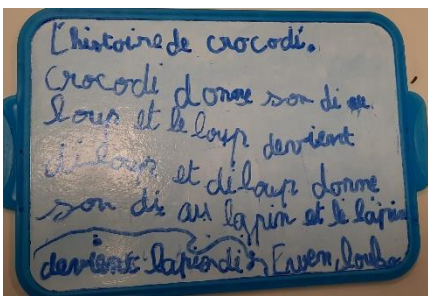 L'histoire de crocodi.
crocodi donne son di au
loup et le loup devient
diloup et diloup donne
son di au lapin et le lapin
devient lapindi. Erwen, louba